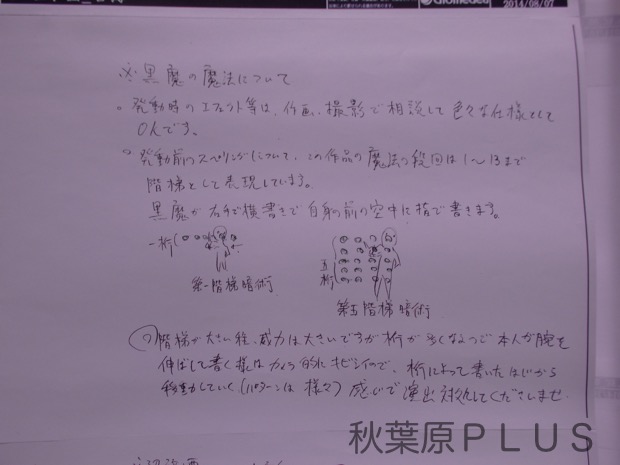 Giomedea
2014/08/07
※黒魔の魔法について
○発動時のエフェクト等は、作画、撮影で相談して色々な仕様として
OKです。
○発動前のスペリングについて、この作品の魔法の段回は1〜13まで
階梯として表現しています。
黒魔が右手で横書きで自身の前の空中に指で書きます。
一桁
五桁
第一階梯暗術
第五階梯暗術
階梯が大きい程、威力は大きいですが桁が多くなるので本人が腕を
伸ばして書く様はカメラ的にキビシイので、桁によって書いたはじから
移動していく(パターンは様々)感じで演出対処してくださいませ.
秋葉原PLUS